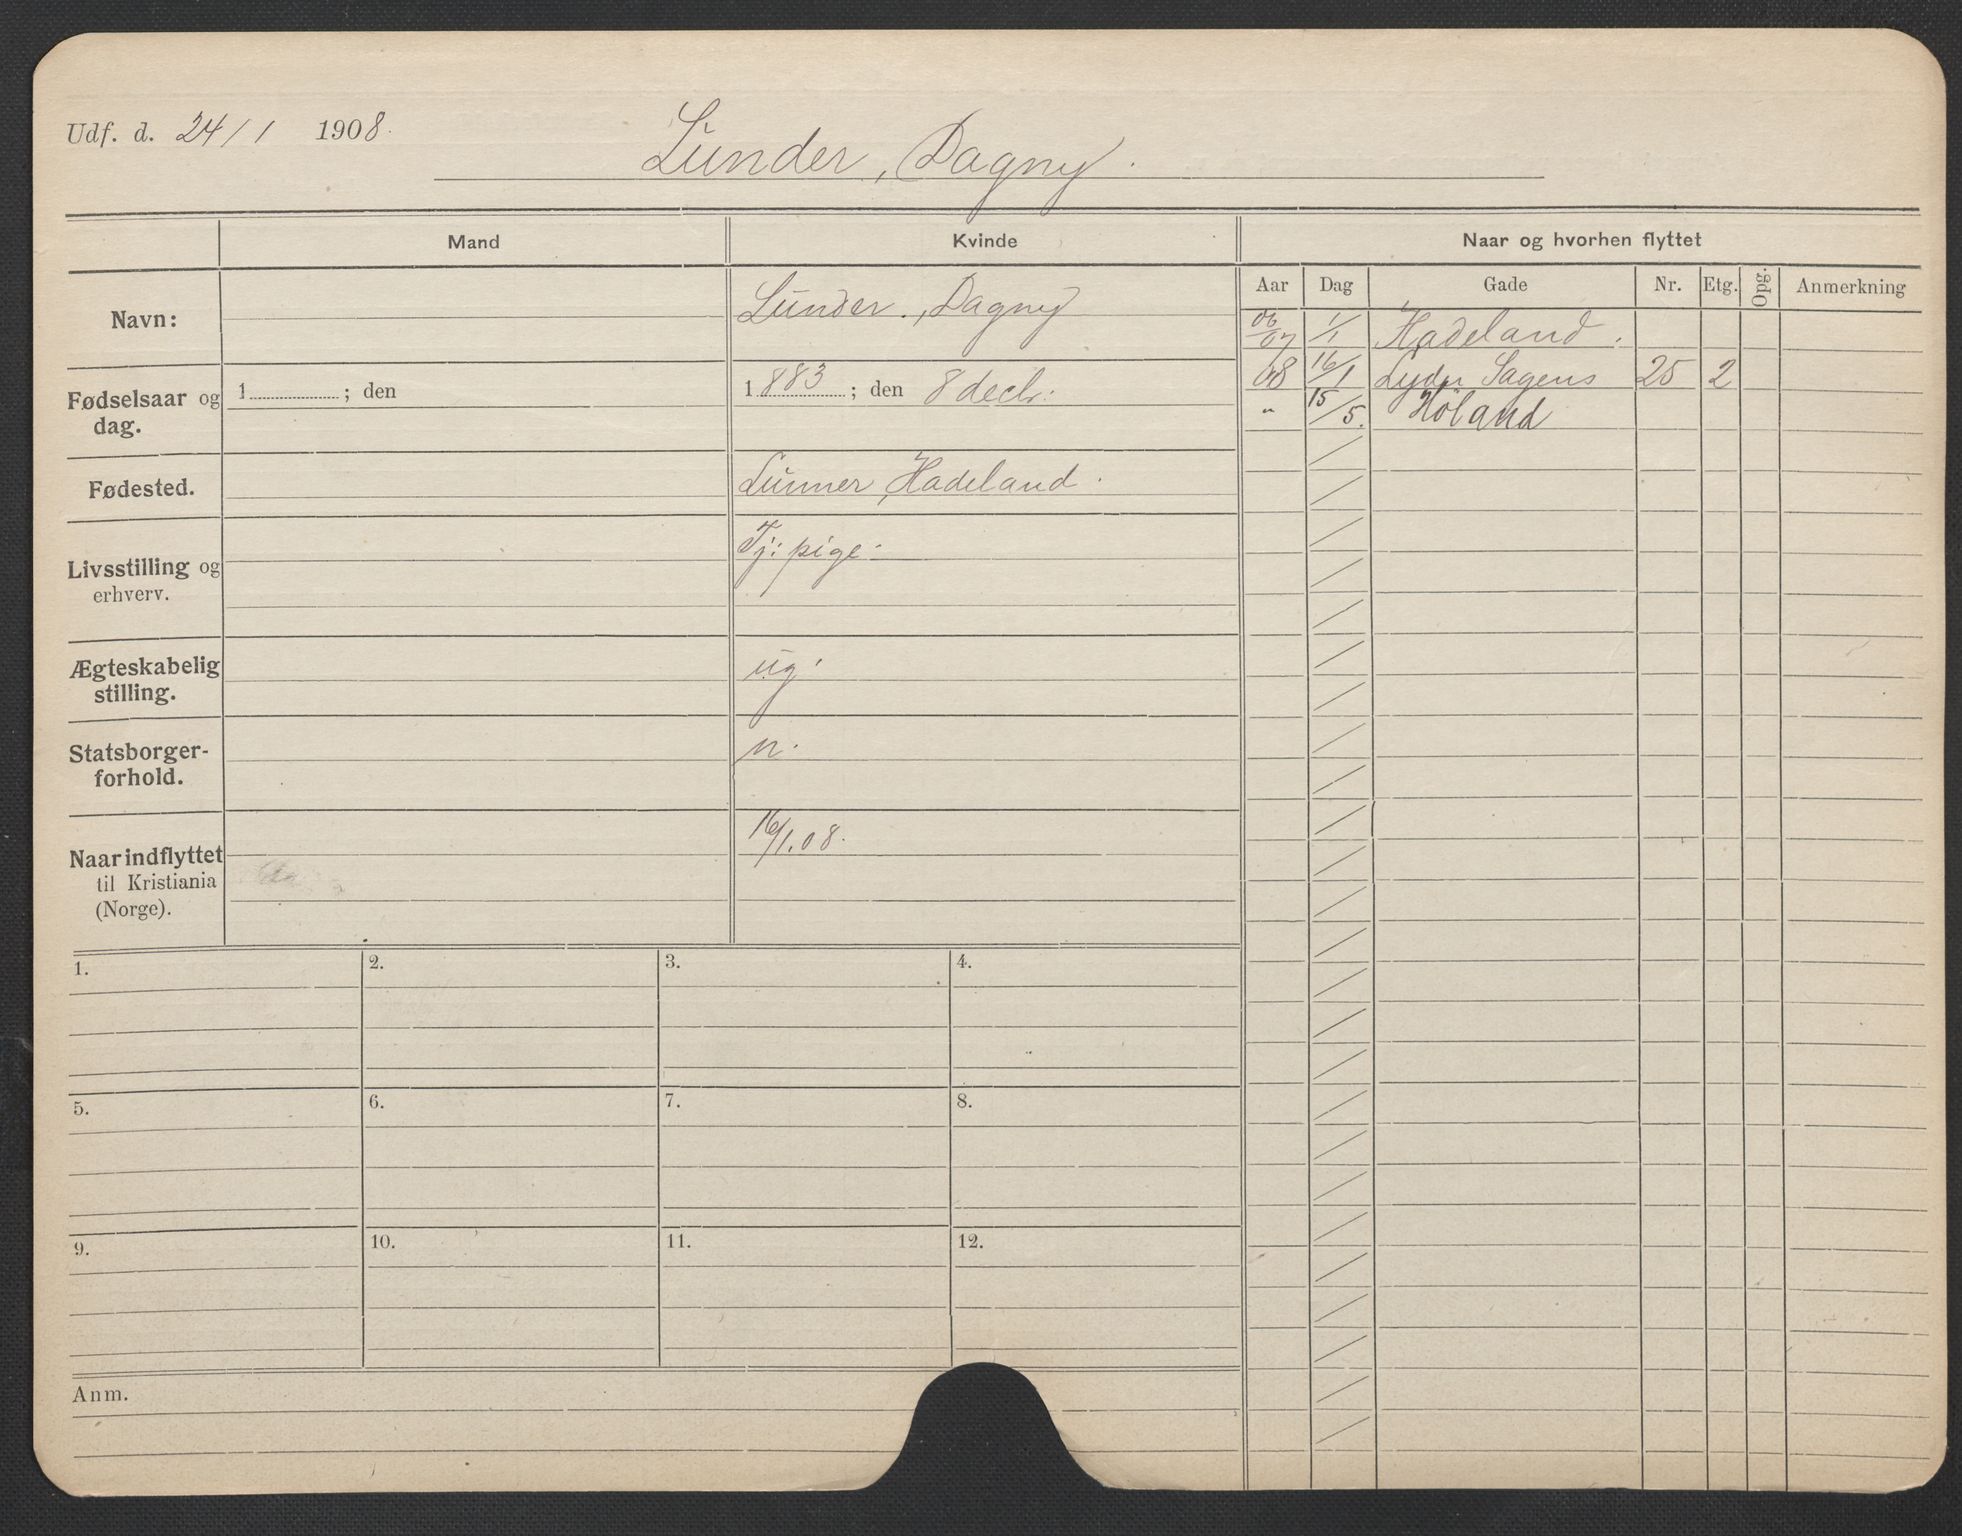 Udf. d. 24/1 1908.
Lunder, Dagny.
Mand Kvinde Naar og hvorhen flyttet
Aar Dag Gade Nr. Etg. Opg. Anmerkning
Navn: Lunder, Dagny
06/07 1/1 Hadeland.
Fødselsaar og dag. 1 ; den 1883 ; den 8 decbr:
08 16/1 Lyder Sagens 25 2
" 15/5. Høland
Fødested. Lunner, Hadeland.
Livsstilling og erhverv. Tj: pige
Ægteskabelig stilling. ug
Statsborger-
forhold. n.
Naar indflyttet 16/1.08.
til Kristiania
(Norge).
1. 2. 3. 4.
5. 6. 7. 8.
9. 10. 11. 12.
Anm.